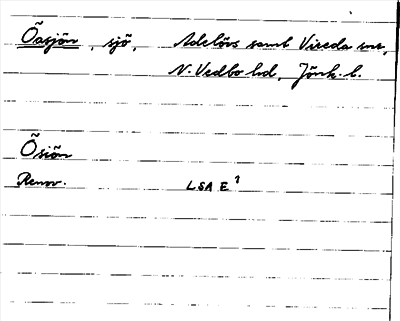 Öasjön, sjö, Adelövs samt Vireda snr,
N. Vedbo hd, Jönk. l.
Ösiön
Renov. LSA E¹